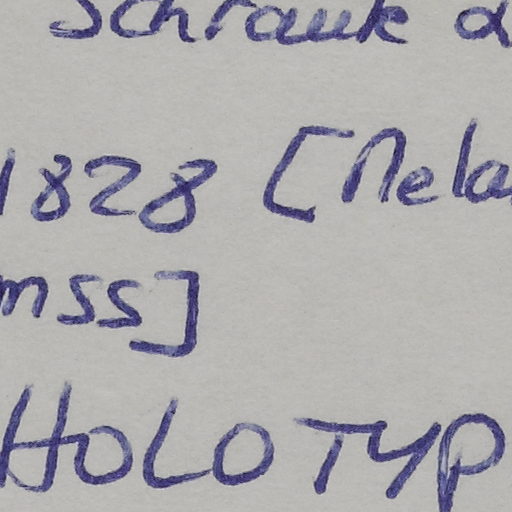 Schrank d
1828 [Mela
mss]
HOLOTYP